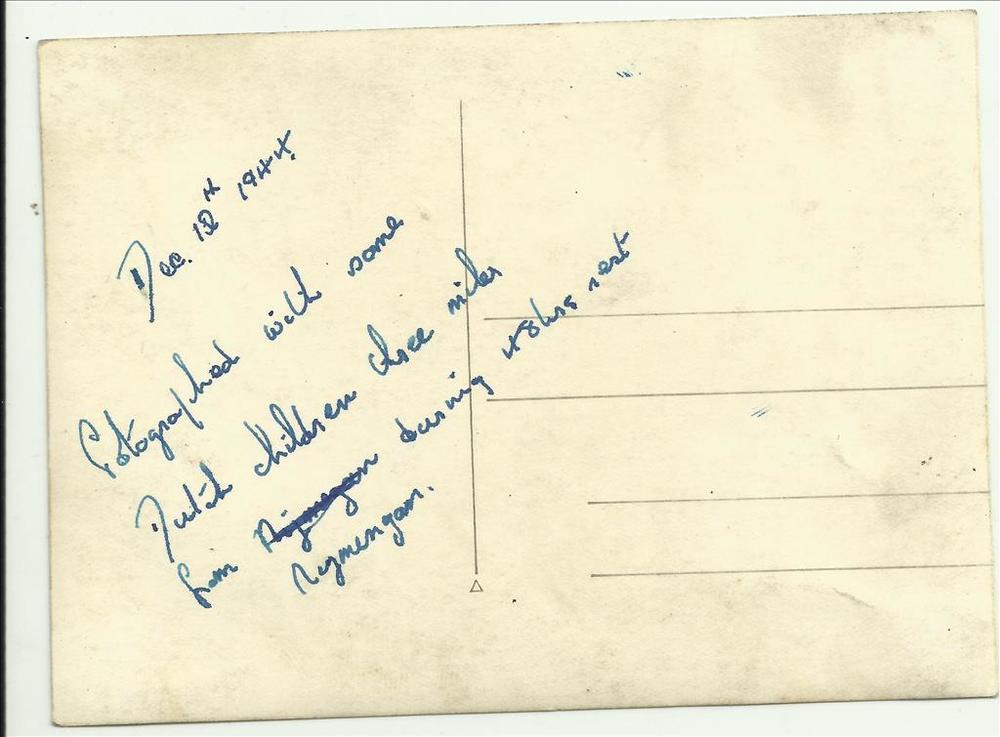 Dec. 10TH 1944.
Fotographed with some
Dutch children three miles
from during 48hrs rest
Nymengam.